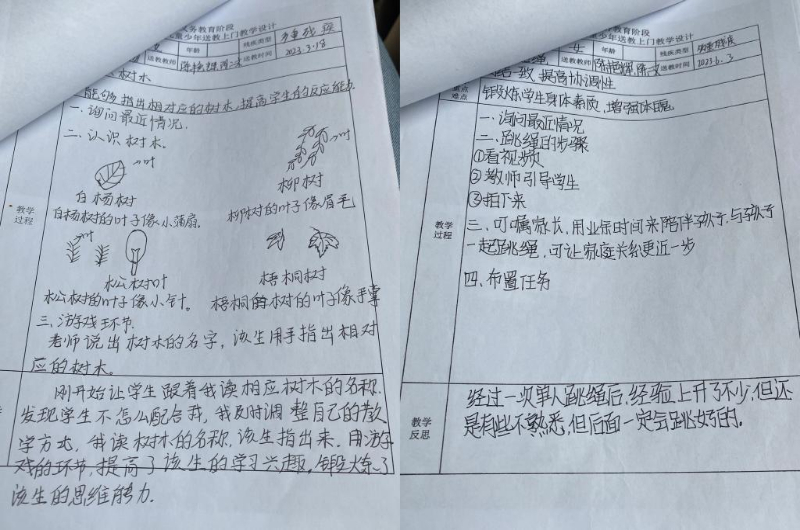 义务教育阶段
童少年送教上门教学设计
年龄
残疾类型
多重残疾
送教教师
送教时间
2023.3.18
树木
能够指出相对应的树木,提高学生的反应能力
一、询问最近情况.
二、认识树木.
叶
白杨树
柳树
白杨树的叶子像小蒲扇.
柳树的叶子像眉毛
教学
过程
叶
松树叶
梧桐树
松树的叶子像小针.
梧桐树的叶子像手掌
三、游戏环节.
老师说出树木的名字,该生用手指出相对
应的树木.
刚开始让学生跟着我读相应树木的名称.
发现学生不怎么配合我,我及时调整自己的教
学方式,我读树木的名称,该生指出来.用游
戏的环节,提高了该生的学习兴趣.锻炼了
该生的思维能力.
教育阶段
少年送教上门教学设计
女
年龄
残疾类型
多重残疾
送教教师
送教时间
2023.6.3
一致,提高协调性
重点
难点
锻炼学生身体素质,增强体魄
一、询问最近情况
二、跳绳的步骤
①看视频
②教师引导学生
③拍下来
教学
过程
三、叮嘱家长,用业余时间来陪伴孩子.与孩子
一起跳绳,可让家庭关系更近一步
四、布置任务
教学
反思
经过一次单人跳绳后,经验上升了不少,但还
是有些不熟悉,但后面一定会跳好的.